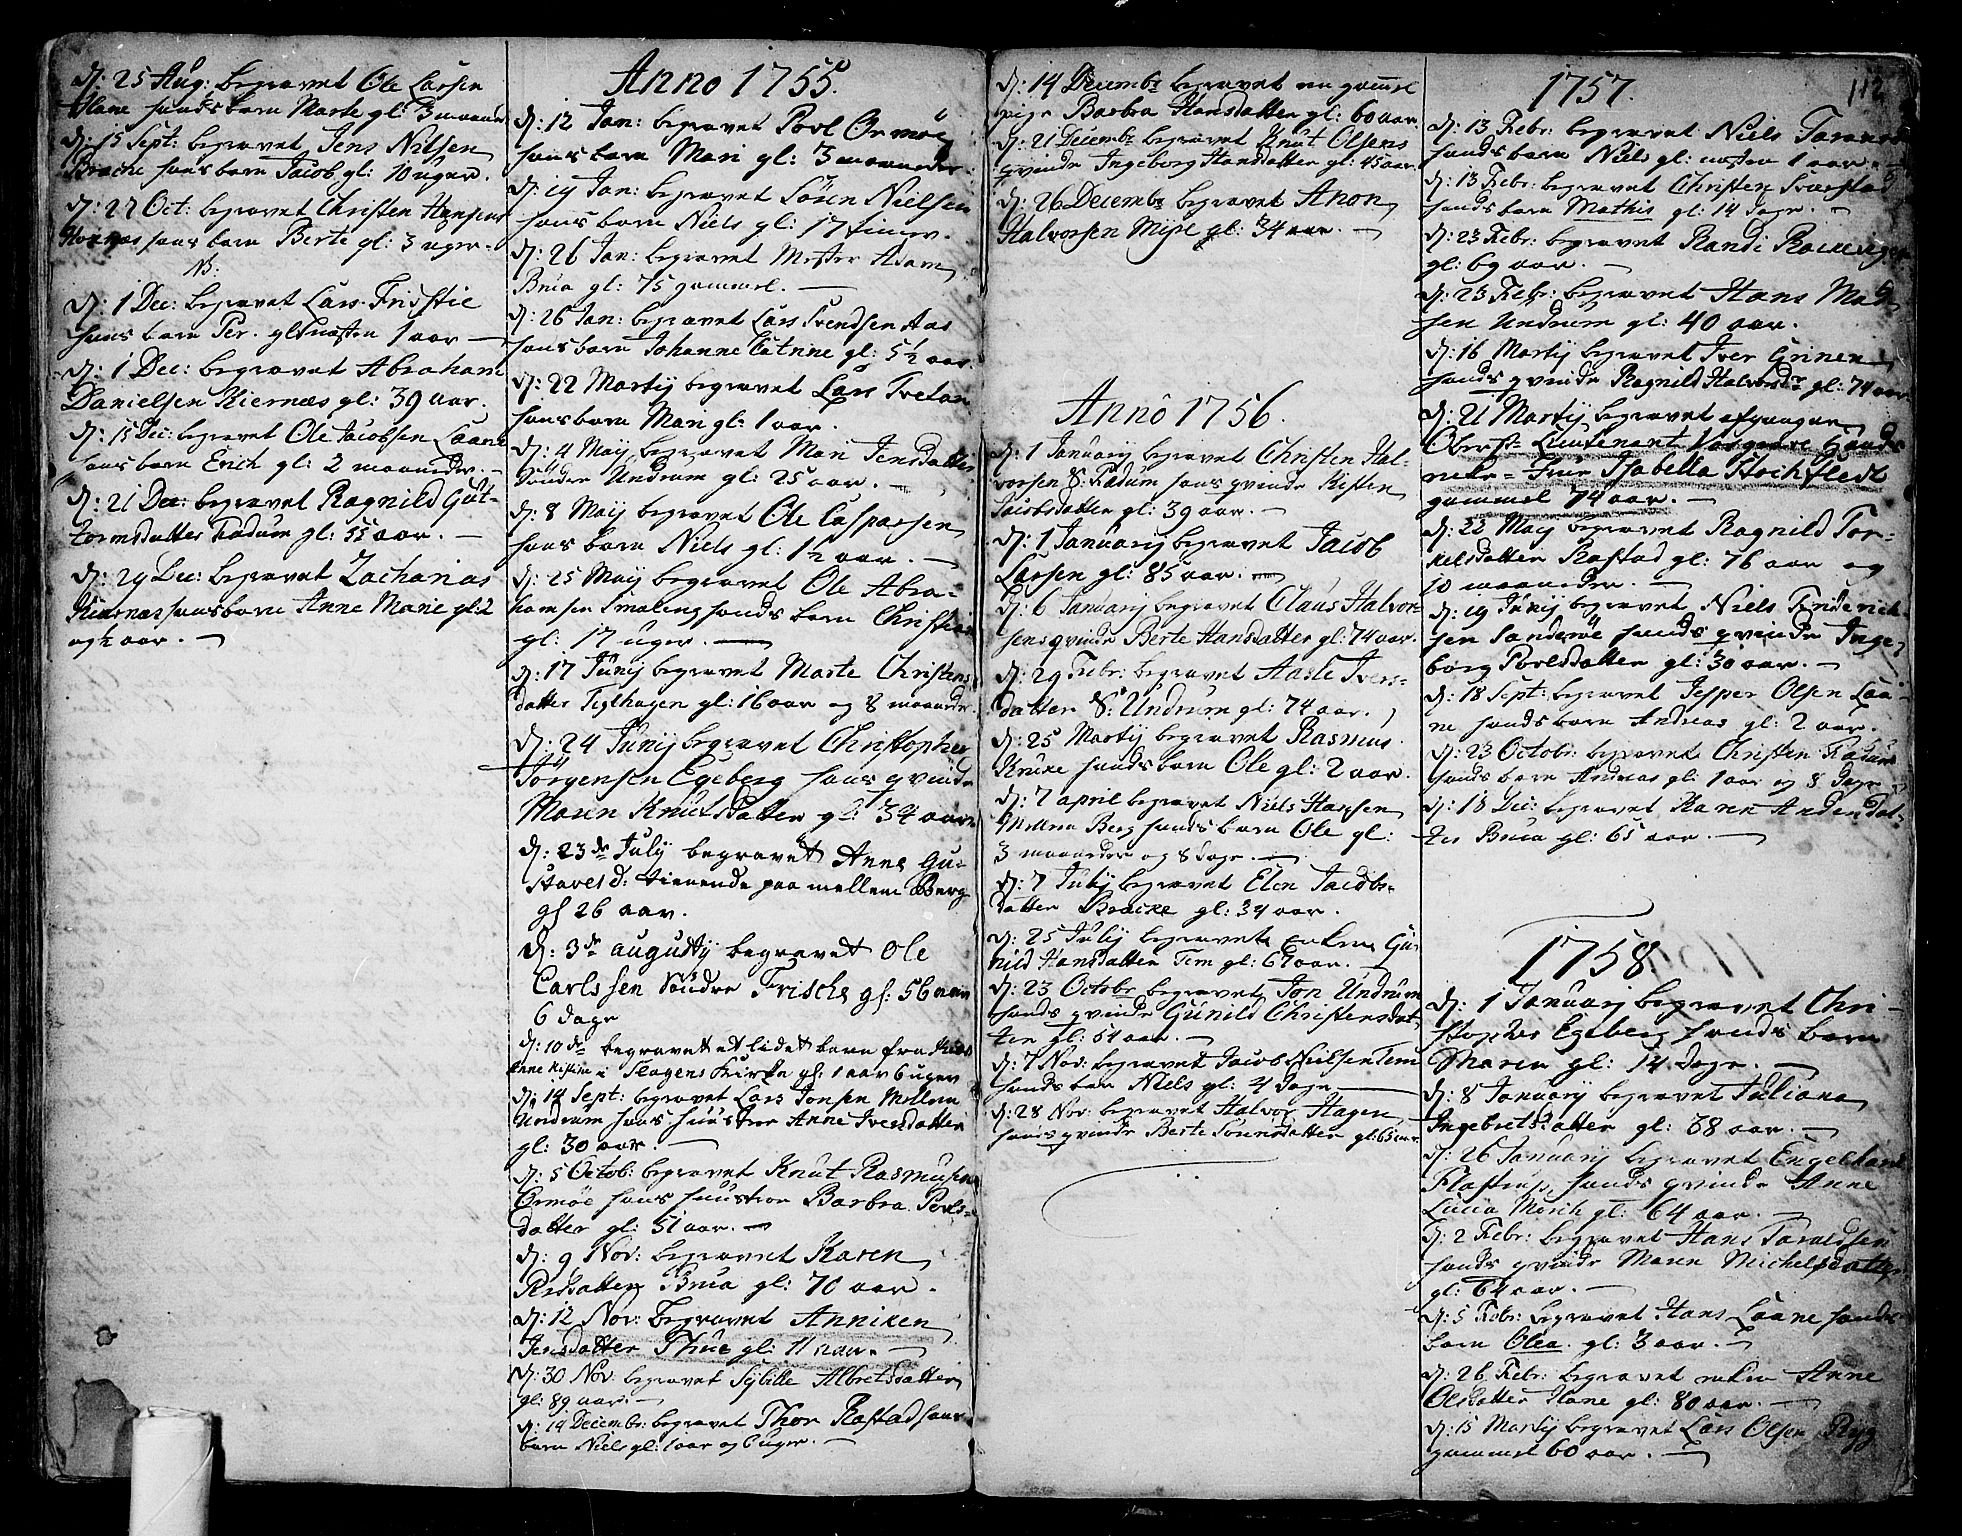 d: 25 Aug: begravet Ole Larsen
hans barn Marte gl: 3 maaned
d: 15 Sept: begravet Jens Nilsen
Bracke hans barn Jacob gl: 10 uger.
d: 27 Oct: begravet Christen Hansens
hans barn Berte gl: 3 uger
NB.
d: 1 Dec: begravet Lars
hans barn Per. gl: næsten 1 aar
d: 1 Dec: begravet Abraham
Danielsen Kiernæs gl: 39 aar.
d: 15 Dec: begravet Ole Jacobsen Laane
hans barn Erich gl: 2 maaneder.
d: 21 Dec: begravet Ragnild Gut-
tormsdatter Fadum gl: 55 aar.
d: 29 Dec: begravet Zacharias
Kiernæs hans barn Anne Marie gl: 2
og ½ aar.
Anno 1755.
d: 12 Jan: begravet Povl Ormöe
hans barn Mari gl: 3 maaneder.
d: 19 Jan: begravet Sören Nielsen
hans barn Niels gl: 17 timer.
d: 26 Jan: begravet Mester Adam
Brua gl: 75 gammel.
d: 26 Jan: begravet Lars Svendsen Aas
hans barn Johanne Catrine gl: 5½ aar.
d: 22 Martij begravet Lars Tveten
hans barn Mari gl: 1 aar.
d: 4 Maij begravet Mari Jensdatter
Sönder Undrum gl: 25 aar.
d: 8 Maij begravet Ole Caspersen
hans barn Niels gl: 1½ aar.
d: 25 Maij begravet Ole Abra-
hamsen Smaleng hands barn Christian
gl: 17 uger.
d: 17 Junij begravet Marte Christens
datter gl: 16 aar og 8 maaneder.
d: 24 Junij begravet Christopher
Jörgensen Egeberg hans qvinde
Maren Knutsdatter gl: 34 aar
d: 23de July begravet Anne Gu-
stavesd: tienende paa mellem Berg
gl 26 aar.
d: 3de augusty begravet Ole
Carlssen Söndre Frische gl: 56 aar
6 dage
d: 10de begravet et lidet barn fra
Anne Kistine i Slagens Kirke gl: 1 aar 6 uger
d: 14 Sept: begravet Lars Jonsen Mellem
Undrum hans huustroe Anne Iversdatter
gl: 30 aar.
d: 5 Octob: begravet Knut Rasmusen
Ormöe hans huustroe Barbra Povls-
datter gl: 51 aar.
d: 9 Nov: begravet Karen
Brua gl: 70 aar.
d: 12 Nov: begravet Anniken
Jensdatter Thue gl: 11 aar.
d: 30 Nov: begravet Sybille Albretsdatter
gl: 89 aar.
d: 14 Decembr: begravet Thor Rastad hans
barn Niels gl: 1 aar og 6 uger.
d: 14 Decembr begravet en gammel
pige Barbra Hansdatter gl: 60 aar
d: 21 Decembr begravet Knut Olsens
qvinde Ingeborg Hansdatter gl: 45 aar.
d: 26 Decembr begravet Anon
Halvorsen Mije gl: 34 aar.
Anno 1756.
d: 1 Januarij begravet Christen Hal-
vorsen S: Fadum hans qvinde Kisten
Jacobsdatter gl: 39 aar.
d: 1 Januarij begravet Jacob
Larsen gl: 85 aar.
d: 6 Januarij begravet Claus Halvor-
sens qvinde Berte Hansdatter gl: 74 aar.
d: 29 Febr: begravet Aasle Ivers-
datter S: Undrum gl: 74 aar.
d: 25 Martij begravet Rasmus
Krüke hands barn Ole gl: 2 aar.
d: 7 april begravet Niels Hansen
Mellem Berg hands barn Ole gl:
3 maaneder og 8 dage.
d: 7 Julij begravet Elen Jacobs-
datter Bracke gl: 34 aar.
d: 25 Julij begravet enken Gu-
nild Hansdatter Tem gl: 67 aar.
d: 23 Octobr begravet Jon Undrum
hands qvinde Gunild Christensdat
ter gl: 54 aar.
d: 7 Nov: begravet Jacob Nielsen Tem
hands barn Niels gl: 4 dage
d: 28 Nov: begravet Halvor Hagen
hands qvinde Berte Sörensdatter gl: 65 aar
112
1757.
d: 13 Febr: begravet Niels
hands barn Niels gl: næsten 1 aar.
d: 13 Febr: begravet Christen Svarstad
hands barn Mathis gl: 14 dage.
d: 23 Febr: begravet Randi
gl: 69 aar.
d: 23 Febr: begravet Hans Mad
sen Undrum gl: 40 aar.
d: 16 Martij begravet Iver Grinen
hands qvinde Ragnild Halvorsdr gl: 74 aar
d: 21 Martij begravet afgangne
Oberst-Lieutenant
Frue Isabella Stochfledt
gammel 74 aar.
d: 22 Maij begravet Ragnild Tor-
kelsdatter Rastad gl: 76 aar og
10 maaneder.
d: 19 Junij begravet Niels Friderich-
sen Sanderöe hands qvinde Inge-
borg Povelsdatter gl: 30 aar.
d: 18 Sept: begravet Jesper Olsen Laa-
ne hands barn Andreas gl: 2 aar.
d: 23 Octobr: begravet Christen Fadum
hands barn Andreas gl: 1 aar og 8 dage
d: 18 Dec: begravet Karen Andersdat-
ter Brua gl: 65 aar.
1758
d: 1 Januarij begravet Chri-
stopher Egeberg hands barn
Maren gl: 14 dage.
d: 8 Januarij begravet Juliana
Ingebretsdatter gl: 68 aar.
d: 26 Januarij begravet Engelhard
Flastrup hands qvinde Anne
Lucia Mörch gl: 64 aar.
d: 2 Febr: begravet Hans Taraldsen
hands qvinde Maren Michelsdatter
gl: 64 aar.
d: 5 Febr: begravet Hans Laane hands
barn Olea gl: 3 aar.
d: 26 Febr: begravet enken Anne
Olsdatter Hane gl: 80 aar.
d: 15 Martij begravet Lars Olsen Ryg
gammel 60 aar.